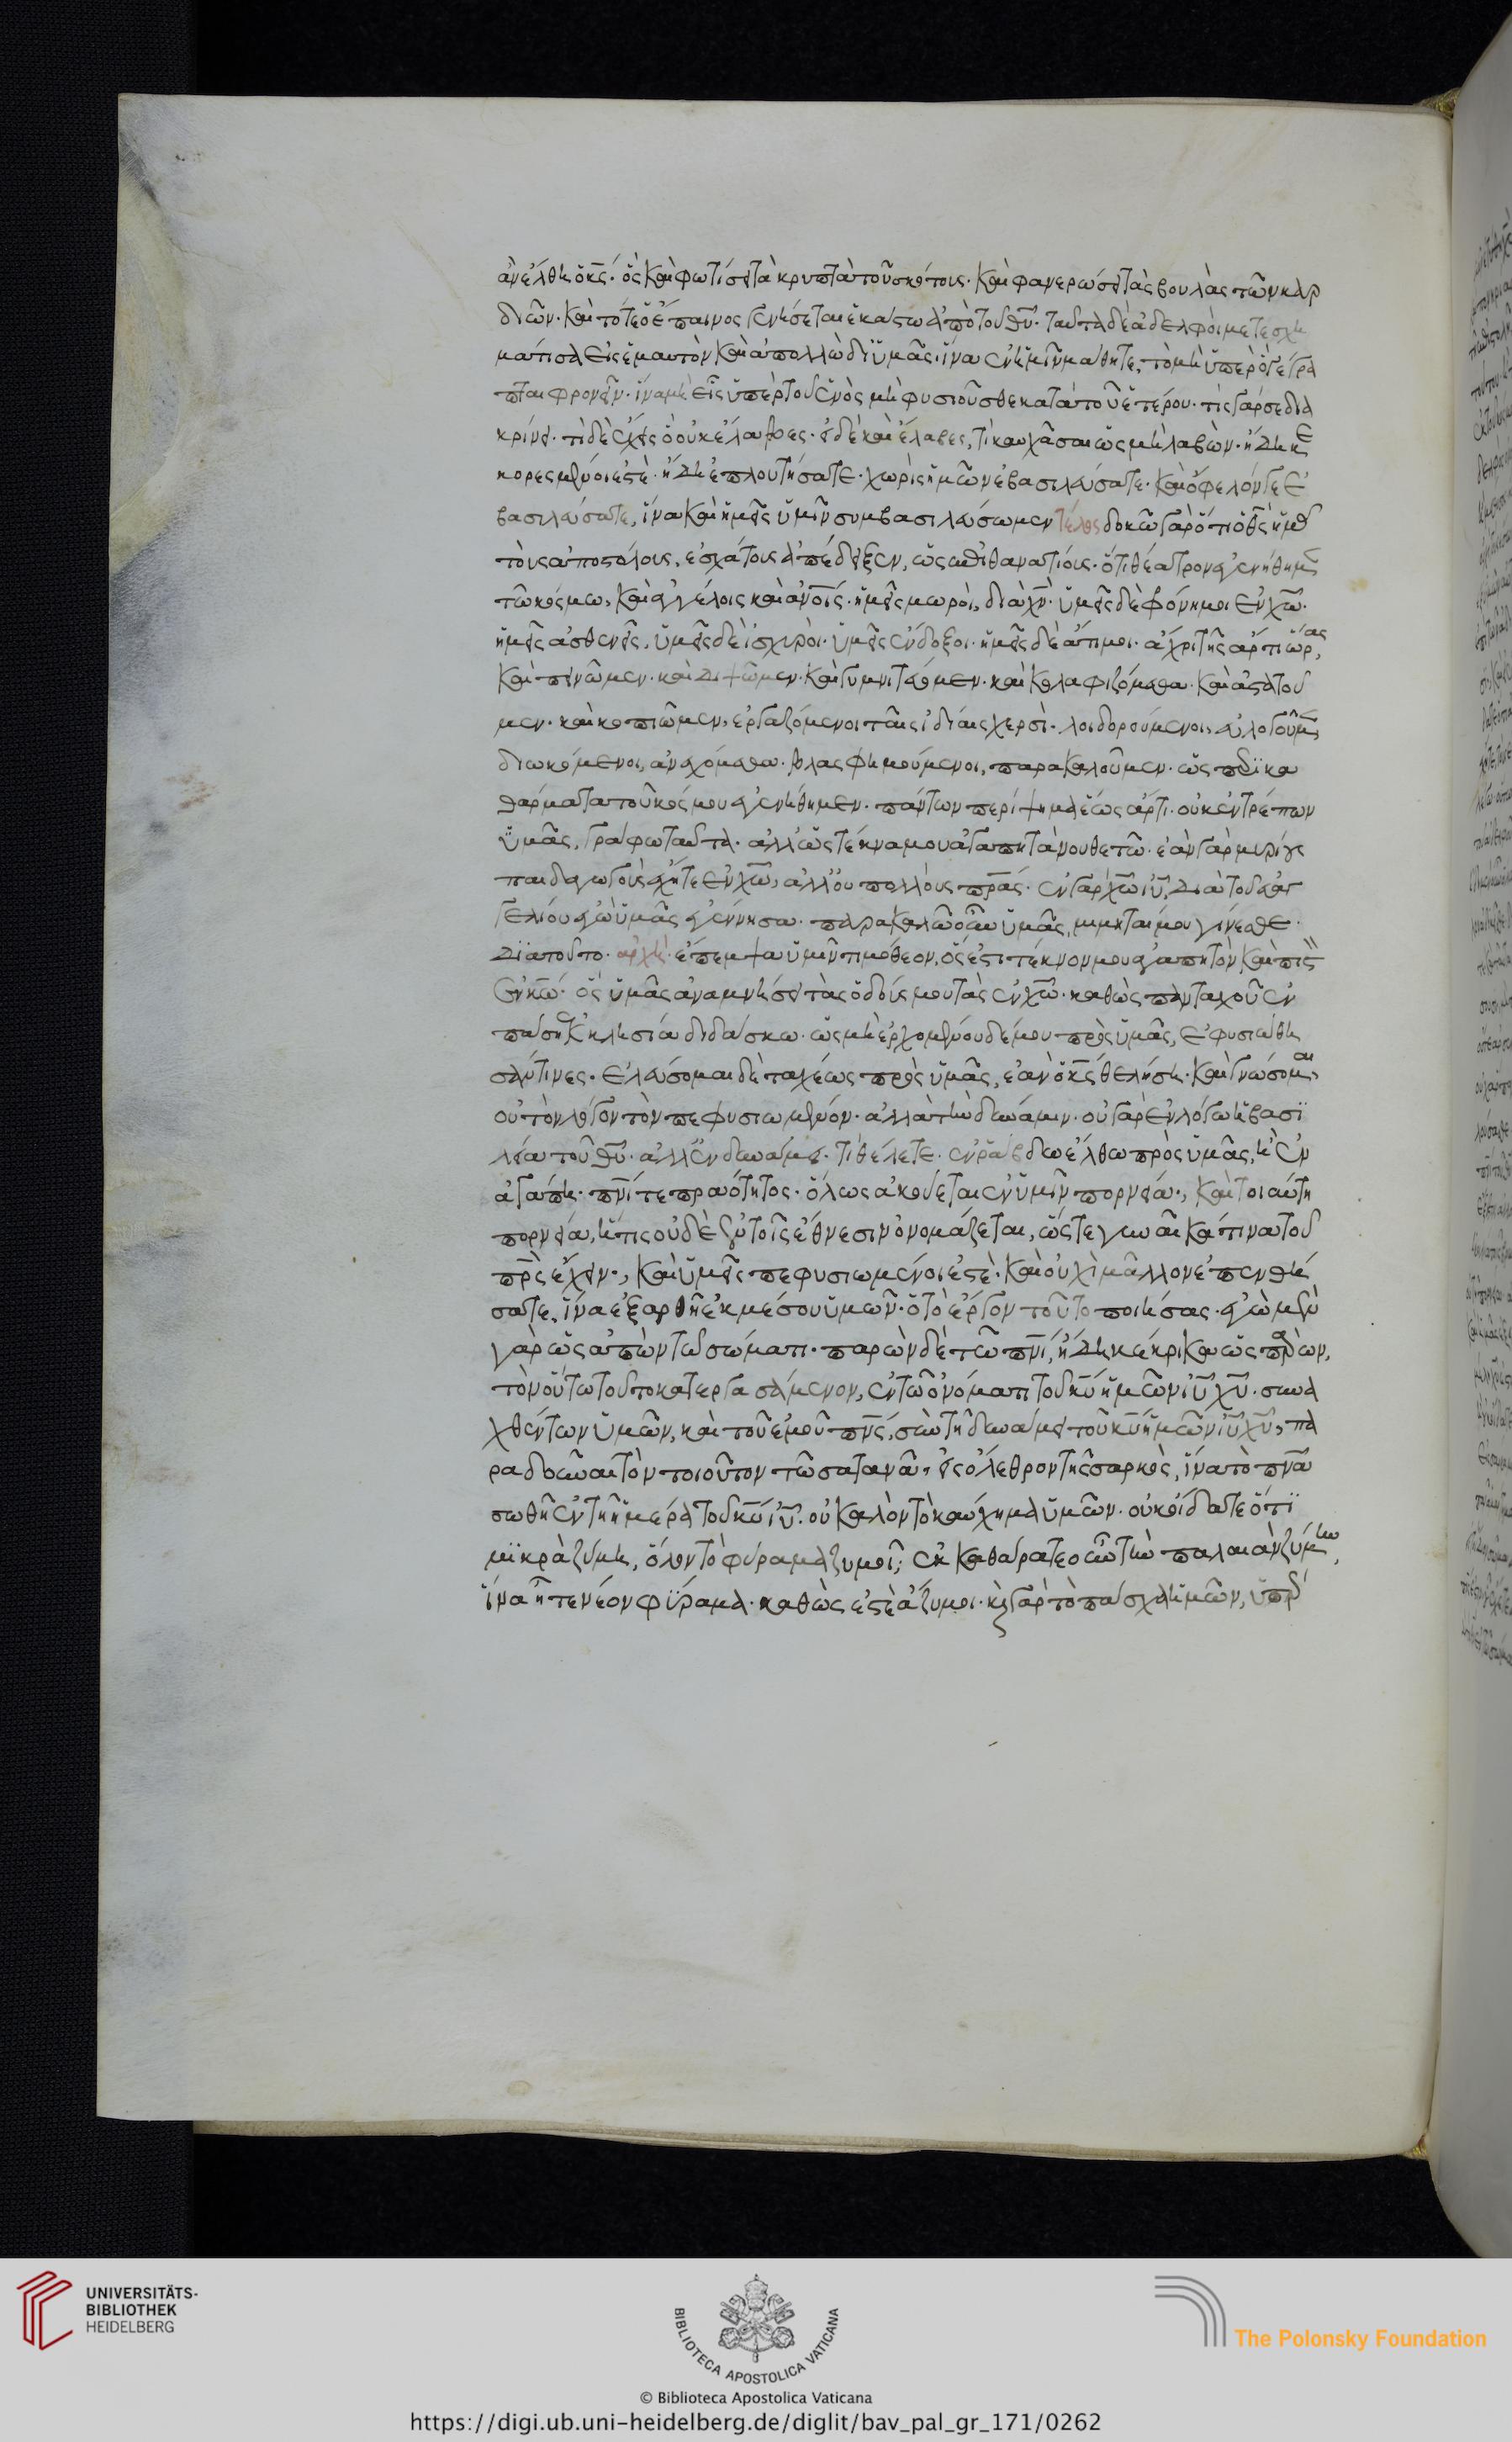 ἂν ἔλθη ὁ κ̅ς̅· ὃς καὶ φωτίσει τὰ κρυπτὰ τοῦ σκότους· καὶ φανερώσει τὰς βουλὰς τῶν καρ
διῶν· καὶ τότε ὁ ἔπαινος γενήσεται ἑκάστω ἀπὸ τοῦ θ̅υ̅· ταῦτα δὲ ἀδελφοὶ μετεσχη
μάτισα εἰς ἐμαυτὸν καὶ ἀπολλὼ δι ὑμᾶς· ἵνα ἐν ἡμῖν μάθητε, τὸ μὴ ὑπὲρ ὃ γέγρα
πται φρονεῖν· ἵνα μὴ εἷς ὑπὲρ τοῦ ἑνὸς μὴ φυσιοῦσθε κατὰ τοῦ ἑτέρου· τίς γάρ σε δια
κρίνει· τί δὲ ἔχεις ὃ οὐκ έλαβες· εἰ δὲ καὶ έλαβες, τί καυχᾶσαι ὡς μὴ λαβών· ἤδη κε
κορεσμένοι ἐστὲ· ἤδη ἐπλουτήσατε· χωρὶς ἡμῶν ἐβασιλεύσατε· καὶ ὄφελόν γε ἐ
βασιλεύσατε, ἵνα καὶ ἡμεῖς ὑμῖν συμβασιλεύσωμεν τέλος δοκῶ γὰρ ὅτι ὁ θ̅ς̅ ἡμᾶς
τοὺς ἀποστόλους, ἐσχάτους ἀπέδειξεν, ὡς ἐπιθανατίους· ὅτι θέατρον ἐγενήθημεν
τῶ κόσμω, καὶ ἀγγέλοις καὶ ἀνοῖς· ἡμεῖς μωροὶ, διὰ χ̅ν̅· ὑμεῖς δὲ φρόνιμοι ἐν χ̅ω̅·
ἡμεῖς ἀσθενεῖς, ὑμεῖς δὲ ἰσχυροὶ· ὑμεῖς ἔνδοξοι· ἡμεῖς δὲ ἄτιμοι· ἄχρι τῆς ἄρτι ὥρας,
καὶ πεινῶμεν· καὶ διψῶμεν· καὶ γυμνιτεύομεν· καὶ κολαφιζόμεθα· καὶ ἀστατοῦ
μεν· καὶ κοπιῶμεν, ἐργαζόμενοι ταῖς ἰδίαις χερσὶ· λοιδορούμενοι, εὐλογοῦμεν,
διωκόμενοι, ἀνεχόμεθα· βλασφημούμενοι, παρακαλοῦμεν· ὡς περικα
θάρματα τοῦ κόσμου ἐγενήθημεν· πάντων περίψημα ἕως άρτι· οὐκ ἐντρέπων
ὑμᾶς, γράφω ταῦτα· ἀλλ ὡς τέκνα μου ἀγαπητὰ νουθετῶ· ἐὰν γὰρ μυρίους
παιδαγωγοὺς ἔχητε ἐν χ̅ω̅, ἀλλ οὐ πολλοὺς π̅ρ̅α̅ς̅· ἐν γὰρ χ̅ω̅ ι̅υ̅, διὰ τοῦ εὐαγ
γελίου ἐγὼ ὑμᾶς ἐγέννησα· παρακαλῶ οὖν ὑμᾶς, μιμηταί μου γίνεσθε·
διὰ τοῦτο· αρχὴ· έπεμψα ὑμῖν τιμόθεον, ὅς ἐστι τέκνον μου ἀγαπητὸν καὶ πιστὸν
ἐν κ̅ω̅· ὃς ὑμᾶς ἀναμνήσει τὰς ὁδούς μου τὰς ἐν χ̅ω̅· καθὼς πανταχοῦ ἐν
πάση ἐκκλησία διδάσκω· ὡς μὴ ἐρχομένου δέ μου πρὸς ὑμᾶς, ἐφυσιώθη
σάν τινες· ἐλεύσομαι δὲ ταχέως πρὸς ὑμᾶς, ἐὰν ὁ κ̅ς̅ θελήση· καὶ γνώσομαι,
οὐ τὸν λόγον τὸν πεφυσιωμένον· ἀλλὰ τὴν δύναμιν· οὐ γὰρ ἐν λόγω ἡ βασι
λεία τοῦ θ̅υ̅· ἀλλ ἐν δυνάμει· τί θέλετε· ἐν ῥάβδω έλθω πρὸς ὑμᾶς, ἢ ἐν
ἀγάπη· π̅ν̅ι̅ τε πραότητος· ὅλως ἀκούεται ἐν ὑμῖν πορνεία·, καὶ τοιαύτη
πορνεία, ἥτις οὐδὲ ἐν τοῖς έθνεσιν ὀνομάζεται, ὥστε γυναῖκά τινα τοῦ
π̅ρ̅ς̅ ἔχειν·, καὶ ὑμεῖς πεφυσιωμένοι ἐστὲ· καὶ οὐχὶ μᾶλλον ἐπενθή
σατε, ἵνα ἐξαρθῆ ἐκ μέσου ὑμῶν· ὁ τὸ έργον τοῦτο ποιήσας· ἐγὼ μὲν
γὰρ ὡς ἀπὼν τῶ σώματι· παρὼν δὲ τῶ π̅ν̅ι̅, ἤδη κέκρικα ὡς παρὼν,
τὸν οὕτω τοῦτο κατεργασάμενον, ἐν τῶ ὀνόματι τοῦ κ̅υ̅ ἡμῶν ι̅υ̅ χ̅υ̅· συνα
χθέντων ὑμῶν, καὶ τοῦ ἐμοῦ π̅ν̅ς̅, σὺν τῆ δυνάμει τοῦ κ̅υ̅ ἡμῶν ι̅υ̅ χ̅υ̅, πα
ραδοῦναι τὸν τοιοῦτον τῶ σατανᾶ, εἰς ὄλεθρον τῆς σαρκὸς, ἵνα τὸ π̅ν̅α̅
σωθῆ ἐν τῆ ἡμέρα τοῦ κ̅υ̅ ι̅υ̅· οὐ καλὸν τὸ καύχημα ὑμῶν· οὐκ οἴδατε ὅτι
μικρὰ ζύμη, ὅλον τὸ φύραμα ζυμοῖ; ἐκκαθάρατε οὖν τὴν παλαιὰν ζύμην,
ἵνα ἦτε νέον φύραμα· καθὼς ἐστὲ ἄζυμοι· καὶ γὰρ τὸ πάσχα ἡμῶν, ὑπὲρ
UNIVERSITÄTS-
BIBLIOTHEK
HEIDELBERG
BIBLIOTECA APOSTOLICA VATICANA
The Polonsky Foundation
© Biblioteca Apostolica Vaticana
https://digi.ub.uni-heidelberg.de/diglit/bav_pal_gr_171/0262